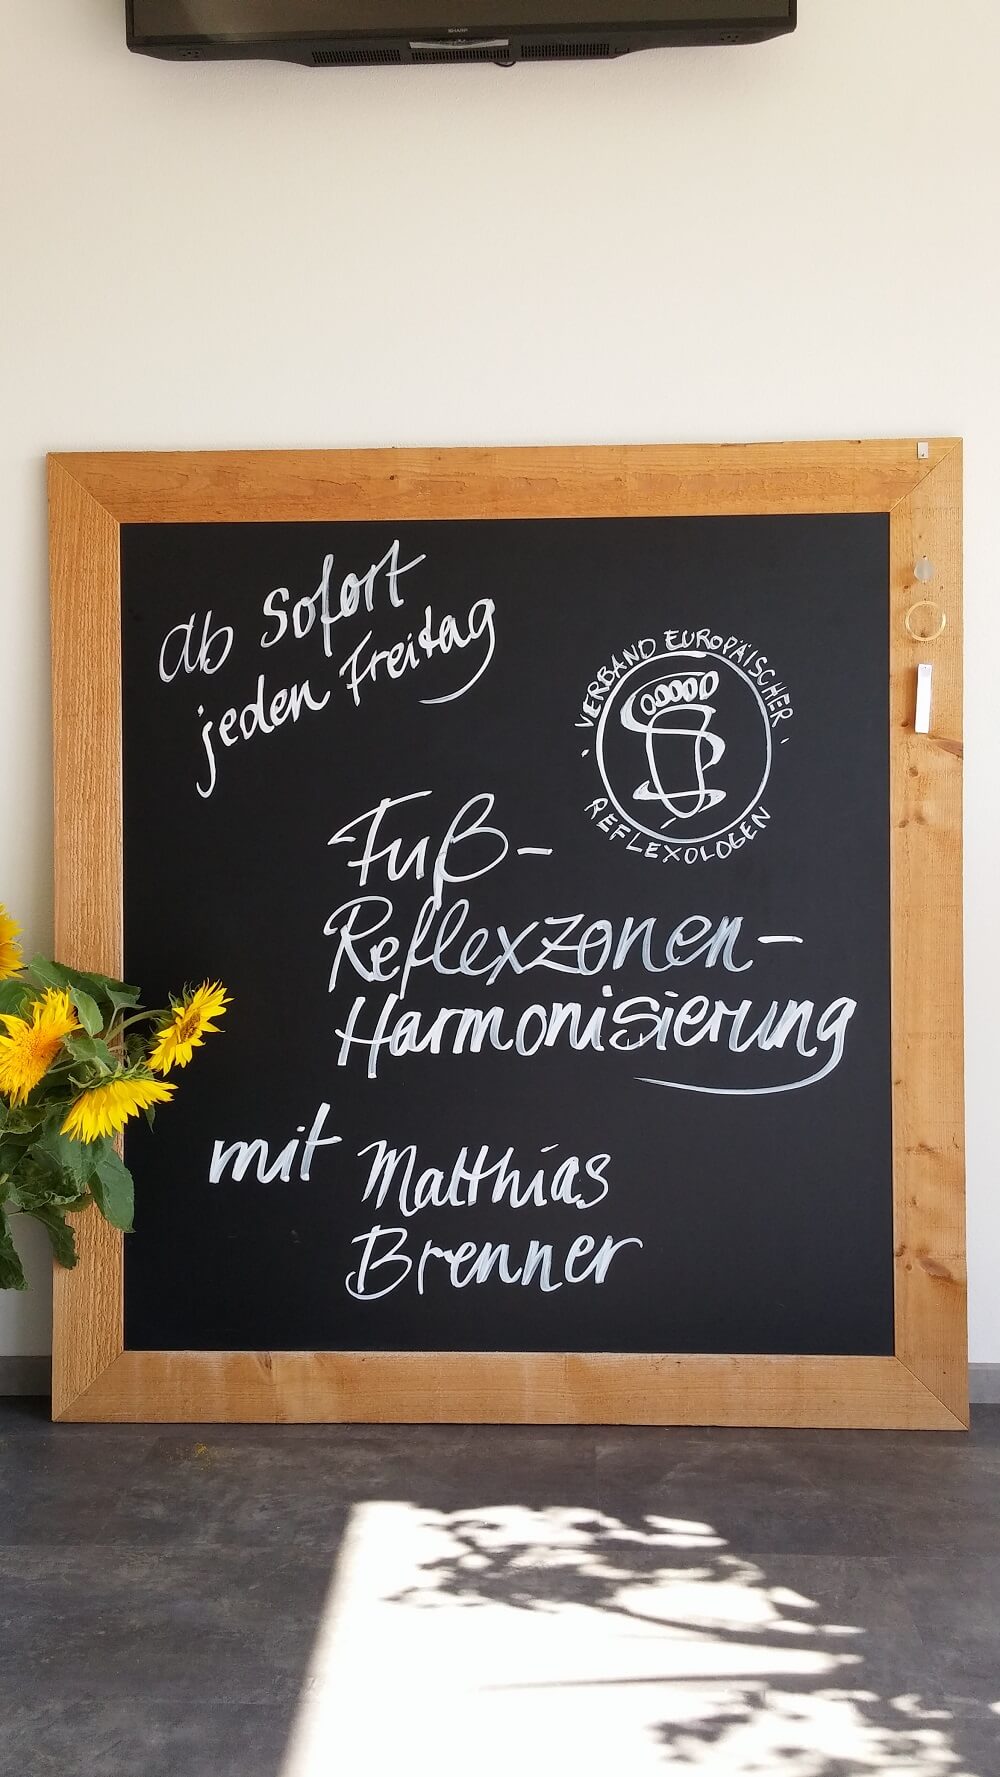 SHARP
ab sofort
jeden Freitag
· VERBAND EUROPÄISCHER ·
REFLEXOLOGEN
Fuß-
Reflexzonen-
Harmonisierung
mit Matthias
Brenner